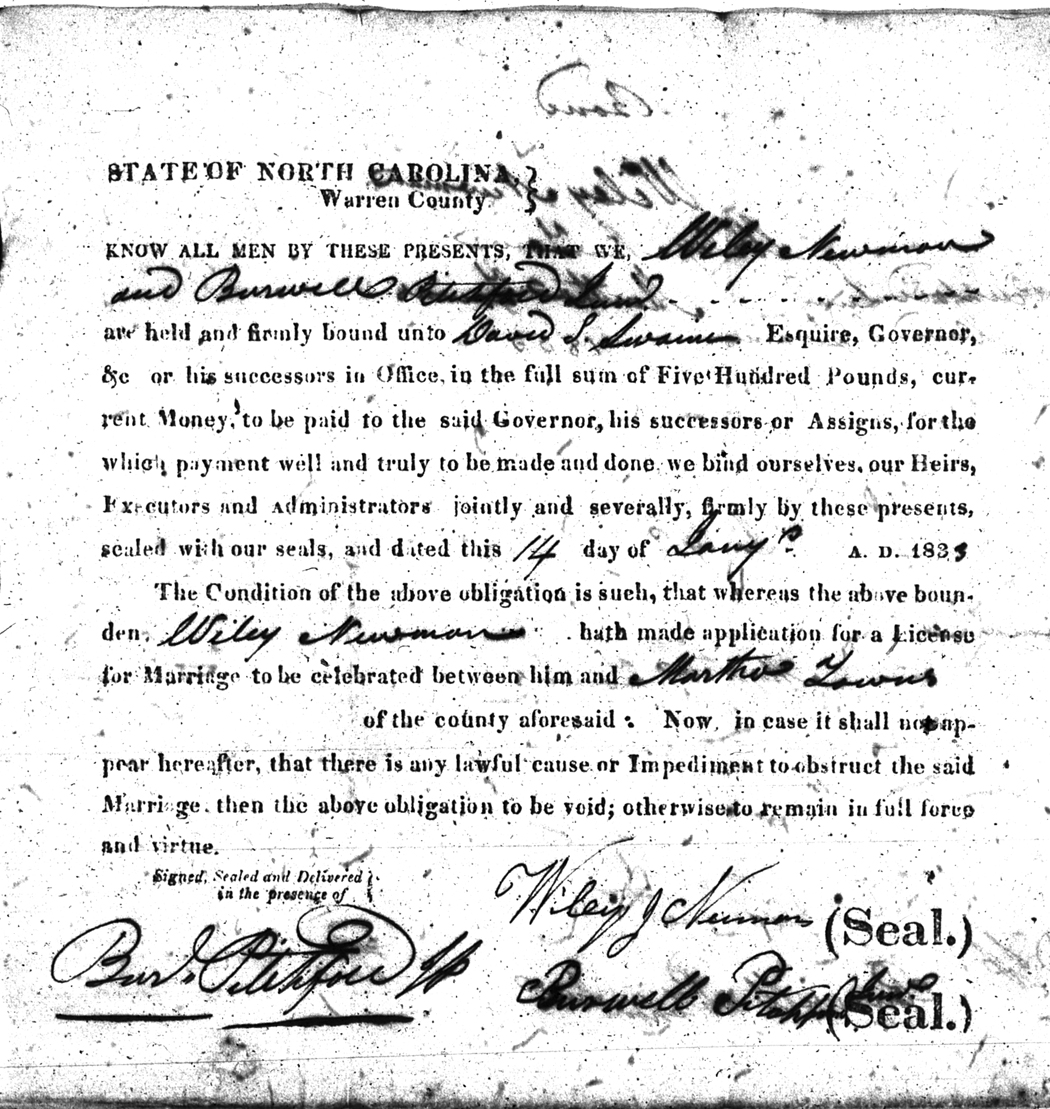 STATE OF NORTH CAROLINA, }
Warren County }
KNOW ALL MEN BY THESE PRESENTS, THAT WE, Wiley Newman
and Burwell Pitchford Junr
are held and firmly bound unto David L. Swaine Esquire, Governor,
&c or his successors in Office, in the full sum of Five Hundred Pounds, cur-
rent Money, to be paid to the said Governor, his successors or Assigns, for the
which payment well and truly to be made and done, we bind ourselves, our Heirs,
Executors and Administrators jointly and severally, firmly by these presents,
sealed with our seals, and dated this 14 day of Jany A. D. 1833
The Condition of the above obligation is such, that whereas the above boun-
den, Wiley Newman hath made application for a License
for Marriage to be celebrated between him and Martha Towns
of the county aforesaid: Now, in case it shall not ap-
pear hereafter, that there is any lawful cause or Impediment to obstruct the said
Marriage, then the above obligation to be void; otherwise to remain in full force
and virtue.
Signed, Sealed and Delivered }
in the presence of }
Wiley J Newman (Seal.)
Burl. Pitchford
Burwell Pitchford Junr (Seal.)